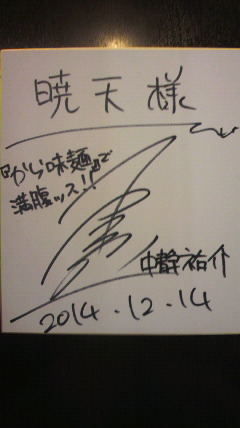 暁天様
『から味麺』で
満腹ッス!!
中静祐介
2014.12.14